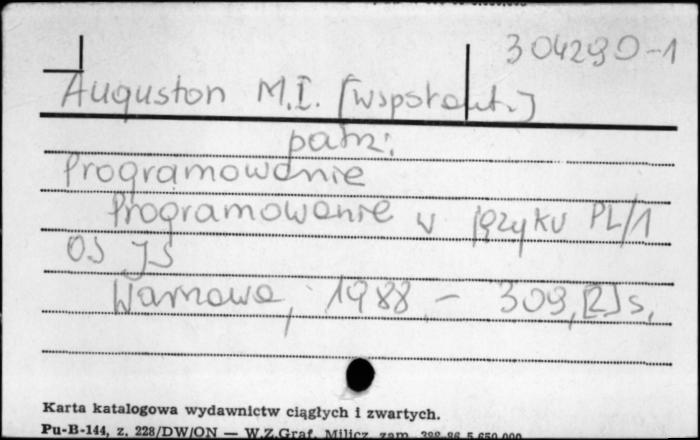 304290-1
Auguston M.I. [współaut.]
patrz:
Programowanie
Programowanie w języku PL/1
OS JS
Warszawa, 1988. - 309, [2] s.
Karta katalogowa wydawnictw ciągłych i zwartych.
Pu-B-144, z. 228/DW/ON — W.Z.Graf. Milicz, zam. 398-86 5.650.000